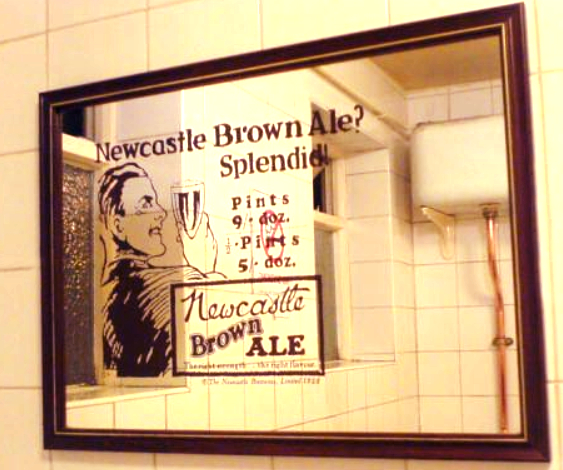 Newcastle Brown Ale?
Splendid!
Pints
9/- doz.
½-Pints
5/- doz.
Newcastle
Brown
ALE
The right strength . . the right flavour
© The Newcastle Breweries, Limited 1928